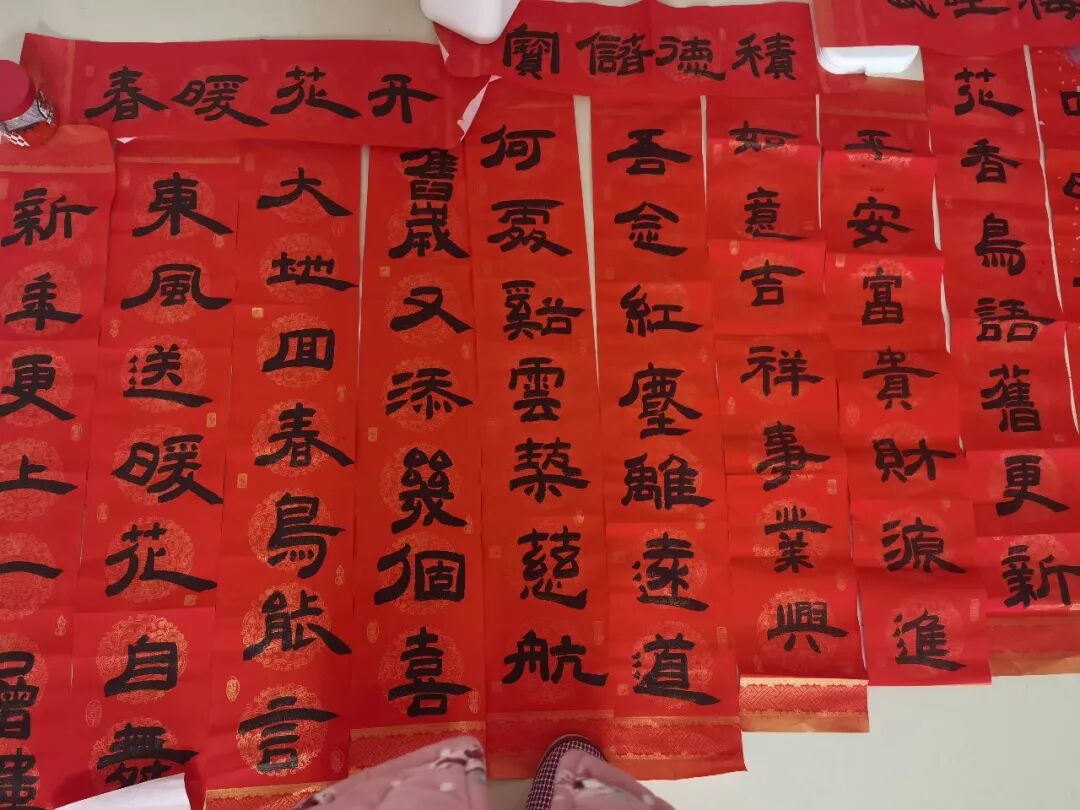 春暖花开
積德儲寶
新年更上一層樓
東風送暖花自舞
大地回春鳥能言
舊歲又添幾個喜
何處谿雲築慈航
吾念紅塵離遠道
如意吉祥事業興
平安富貴財源進
花香鳥語舊更新